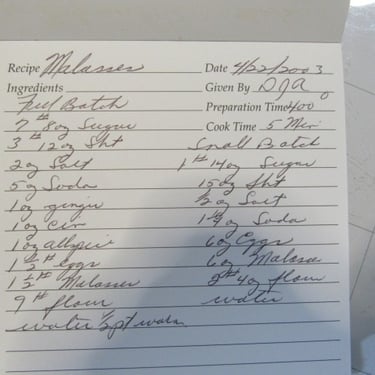 Recipe Malasses Date 4/22/2003
Ingredients Given By DJA
Full Batch Preparation Time 400
7# 8 oz Sugar Cook Time 5 Min
3# 12 oz Sht Small Batch
2 oz Salt 1# 14 oz Sugar
5 oz Soda 15 oz Sht
1 oz ginger ½ oz Salt
1 oz Cin 1¼ oz Soda
1 oz allspice 6 oz Eggs
1½ # Eggs 6 oz Malasses
1½ # Malasses 2# 4 oz flour
9# flour water
water ½ pt